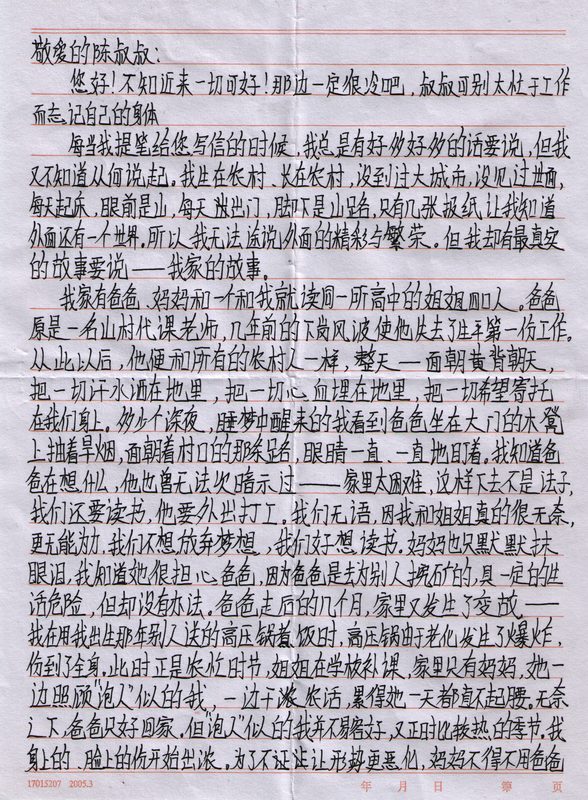 敬爱的陈叔叔：
您好！不知近来一切可好！那边一定很冷吧，叔叔可别太忙于工作
而忘记自己的身体
每当我提笔给您写信的时候，我总是有好多好多的话要说，但我
又不知道从何说起。我生在农村、长在农村，没到过大城市，没见过世面，
每天起床，眼前是山，每天放出门，脚下是山路，只有几张报纸让我知道
外面还有一个世界。所以我无法诠说外面的精彩与繁荣。但我却有最真实
的故事要说——我家的故事。
我家有爸爸、妈妈和一个和我就读同一所高中的姐姐四口人。爸爸
原是一名山村代课老师，几年前的下岗风波使他失去了生平第一份工作。
从此以后，他便和所有的农村人一样，整天一面朝黄背朝天，
把一切汗水洒在地里，把一切心血埋在地里，把一切希望寄托
在我们身上。多少个深夜，睡梦中醒来的我看到爸爸坐在大门的木凳
上抽着旱烟，面朝着村口的那条路，眼睛一直、一直地盯着。我知道爸
爸在想什么，他也曾无法次暗示过——家里太困难，这样下去不是法子，
我们还要读书，他要外出打工。我们无语，因我和姐姐真的很无奈，
更无能为力，我们不想放弃梦想，我们好想读书。妈妈也只默默抹
眼泪，我知道她很担心爸爸，因为爸爸是去为别人挖矿的，具一定的生
活危险，但却没有办法。爸爸走后的几个月，家里又发生了变故——
我在用我出生那年别人送的高压锅煮饭时，高压锅由于老化发生了爆炸，
伤到了全身。此时正是农忙时节，姐姐在学校补课，家里只有妈妈，她一
边照顾“泡人”似的我，一边干农活，累得她一天都直不起腰。无奈
之下，爸爸只好回家。但“泡人”似的我并不易容好，又正时比较热的季节。我
身上的、脸上的伤开始出浓。为了不让让形势更恶化，妈妈不得不用爸爸
17015207 2005.3 年 月 日 第 页